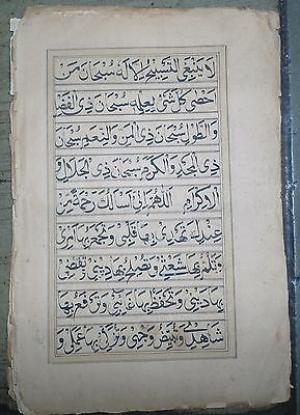 لا ينبغی التسبیح الا له سبحان من
احصی کل شئ بعلمه سبحان ذی الفضل
والطول سبحان ذی المن والنعم سبحان
ذی المجد والکرم سبحان ذی الجلال و
الاکرام اللهم انی اسالک رحمة من
عندک تهدی بها قلبی وتجمع بها امری
وتلم بها شعثی وتصلح بها دینی وتقضی
بها دینی وتحفظ بها غائبی وترفع بها
شاهدی وتبیض وجهی وتزکی بها عملی و